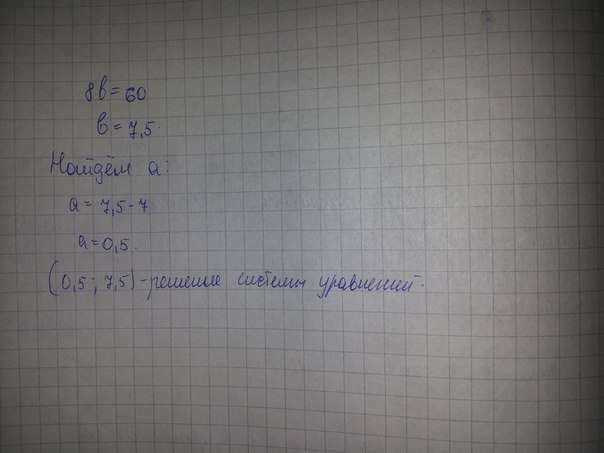 8b = 60
b = 7,5.
Найдём a:
a = 7,5 - 7
a = 0,5.
(0,5; 7,5) - решение системы уравнений.